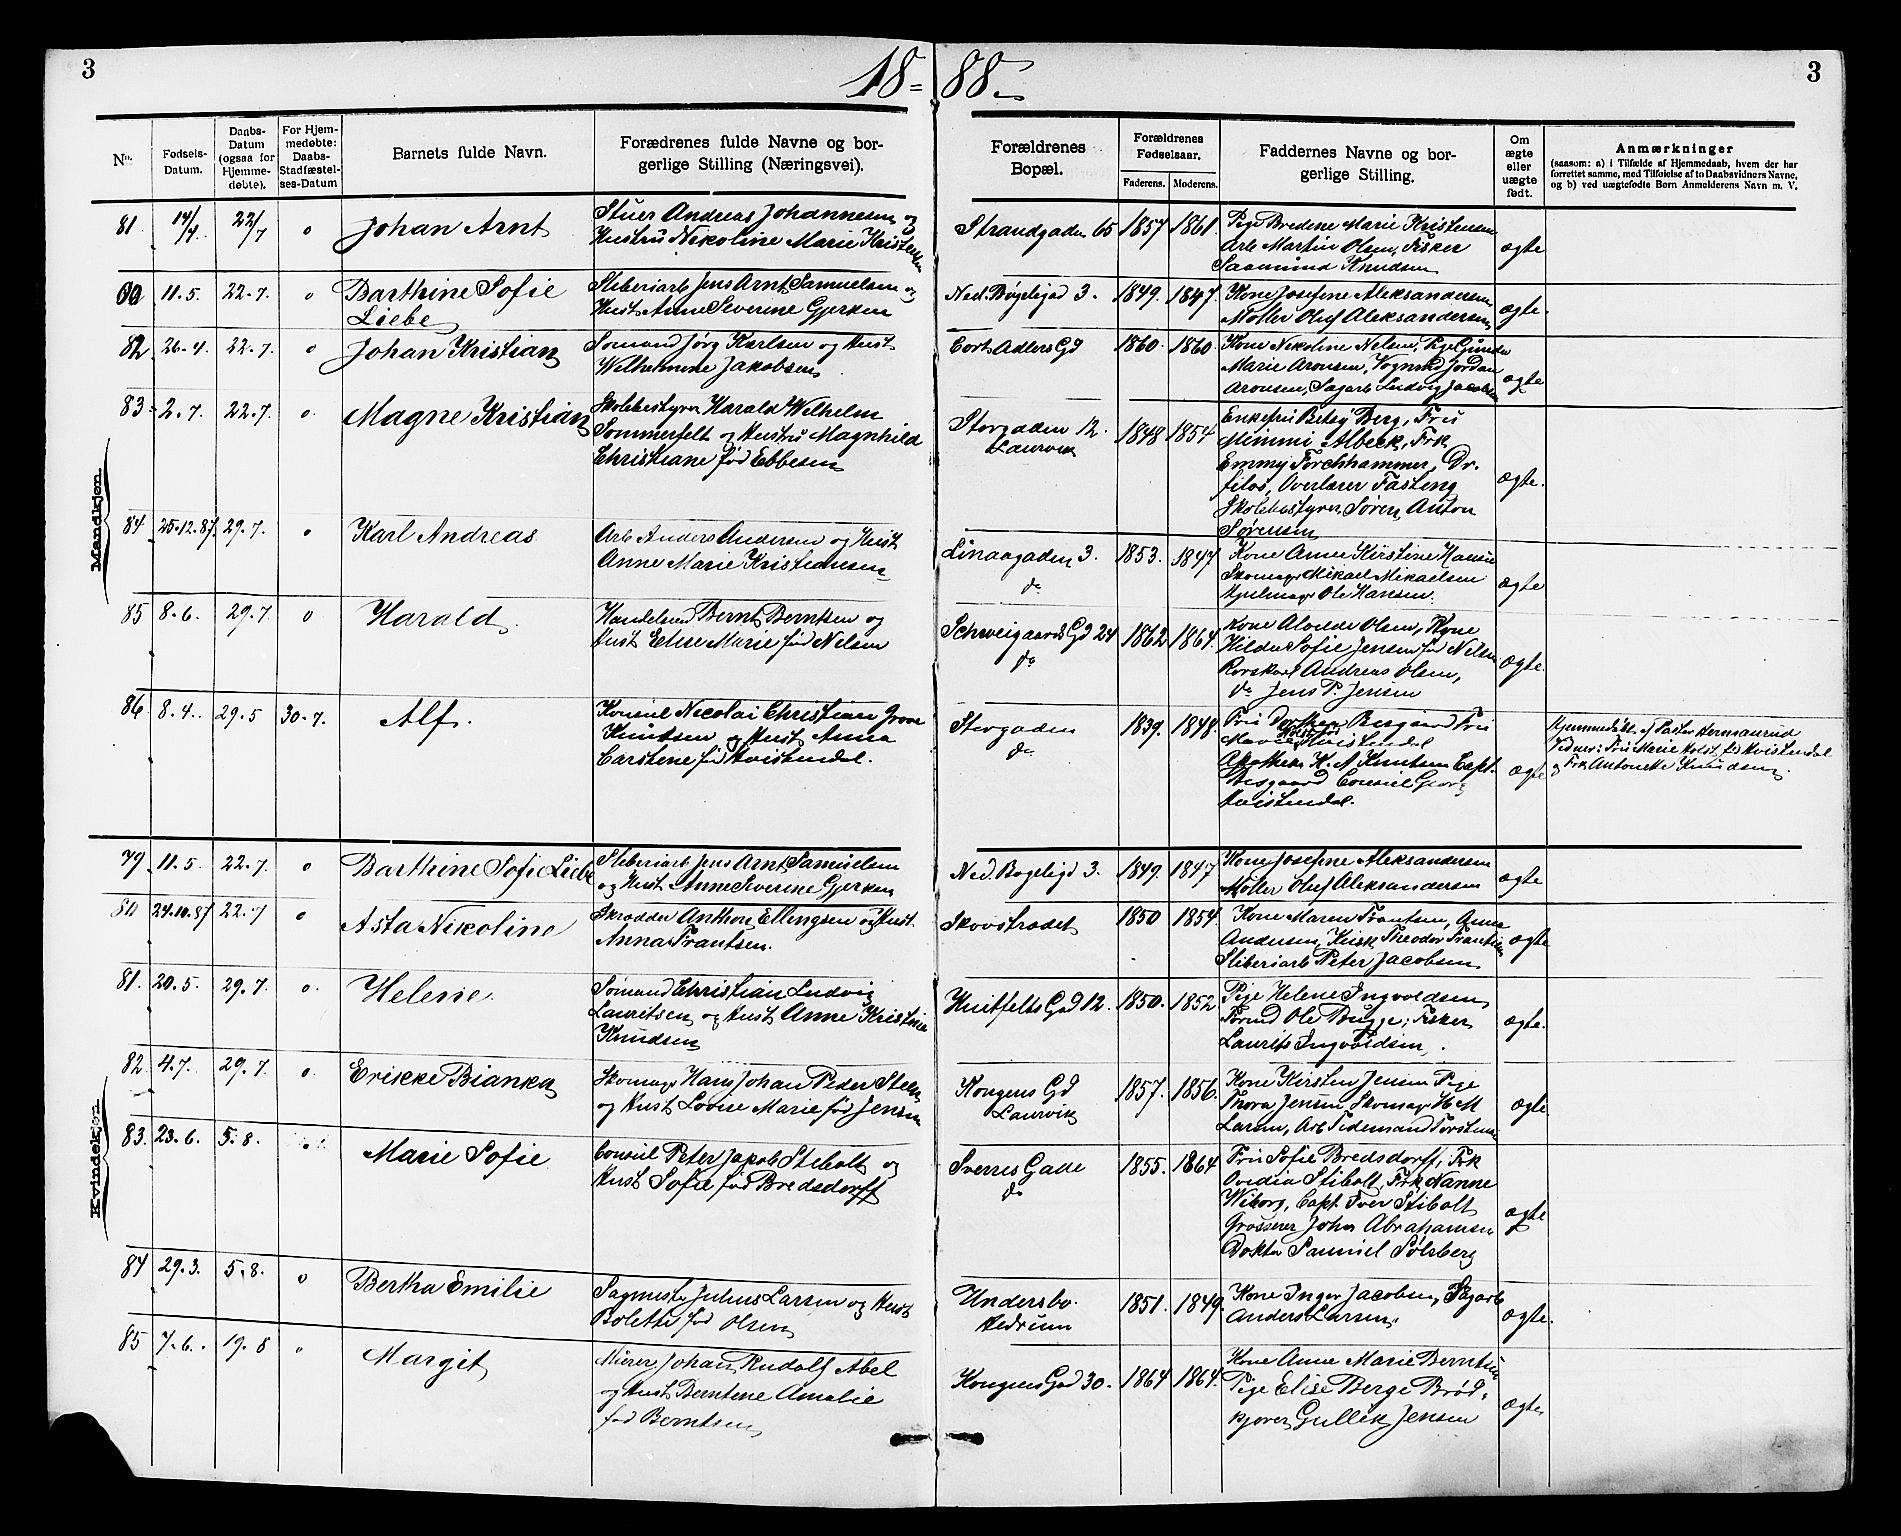 3
18 = 88.
3
No.
Fødsels-
Datum.
Daabs-
Datum
(ogsaa for
Hjemme-
døbte).
For Hjem-
medøbte:
Daabs-
Stadfæstel-
ses-Datum
Barnets fulde Navn.
Forædrenes fulde Navne og bor-
gerlige Stilling (Næringsvei).
Forældrenes
Bopæl.
Forældrenes
Fødselsaar.
Faderens. Moderens.
Faddernes Navne og bor-
gerlige Stilling.
Om
ægte
eller
uægte
født.
Anmærkninger
(saasom: a) i Tilfælde af Hjemmedaab, hvem der har
forrettet samme, med Tilføielse af to Daabsvidners Navne,
og b) ved uægtefødte Børn Anmelderens Navn m. V.
Mandkjøn
81. 14/4 22/7 0 Johan Arnt
Stuer Andreas Johannesen og
Hustru Nikoline Marie Kristensen
Strandgaden 65 1857 1861
Pige Bredene Marie Kristensen
Arb Martin Olsen, Fisker
Saamund Knudsen
ægte
11.5. 22.7. 0 Barthine Sofie
Liebe
Sliberiarb Jens Arnt Samuelsen og
Hust Anne Severine Gjerken
Ned. Bøgeligd 3. 1849. 1847.
Kone Josefine Aleksandersen
Møller Oluf Aleksandersen
ægte.
82 26.4. 22.7. 0 Johan Kristian
Sømand Jørg Karlsen og Hust
Wilhelmine Jakobsen
Cort Adlers Gd 1860. 1860.
Kone Nikoline Nelsen, Pige Gunda
Marie Aronsen, Vognmd Jordan
Aronsen, Sagarb Ludvig Jacobsen
ægte
83. 2.7. 22.7. 0. Magne Kristian
Skolebestyrer Harald Wilhelm
Sommerfelt og Hustru Magnhild
Christiane fød Ebbesen
Storgaden 12.
Laurvik
1848 1854
Enkefru Betsy Berg, Fru
Mimmi Albeck, Frk
Emmy Forchhammer, Dr.
filos, Overlærer Fasting
Skolebestyrer Søren Anton
Sørensen
ægte.
84 25.12.87. 29.7. 0 Karl Andreas
Arb Anders Andersen og Hust
Anne Marie Kristiansen
Linaagaden 3.
do
1853. 1847
Kone Anne Kirstine Hansen
Skomagr Mikael Mikaelsen
Hjulmagr Ole Hansen.
ægte
85 8.6. 29.7. 0 Harald
Handelsmd Bernt Berntsen og
Hust Elise Marie fød Nelsen
Schweigaards Gd 24
do
1862 1864.
Kone Alvilde Olsen, Kone
Hilda Sofie Jensen fød Nelsen
Rorskarl Andreas Olsen,
do Jens P. Jensen
ægte.
86 8.4. 29.5 30.7. Alf.
Konsul Nicolai Christian Grove
Knudsen og Hust Anna
Carstine fød Kvistendal.
Storgaden
do
1839. 1848.
Fru Dorthea Fru
Marie Holst fød Hvistendal
Apotheker K. N Knutsen Capt.
Consul Georg
Hvistendal.
ægte
Hjemmedøbt af Pastor Hermanrud
Vidner: Fru Marie Holst, fd Hvistendal
og Frk Antonette Knudsen.
Kvindekjøn
79. 11.5. 22.7. 0 Barthine Sofie Liebe
Sliberiarb Jens Arnt Samuelsen
og Hust Anne Severine Gjerken
Ned. Bøgeligd 3. 1849. 1847
Kone Josefine Aleksandersen
Møller Oluf Aleksandersen
ægte
80 24.10.87 22.7 0 Asta Nikoline
Skrædder Anthon Ellingsen og Hust.
Anna Frantsen.
Skovstrædet 1850 1854.
Kone Maren Frantsen, Anna
Andersen, Kusk Theodor Frantsen
Sliberiarb Peter Jacobsen
ægte
81. 20.5. 29.7. 0. Helene.
Sømand Christian Ludvig
Lauritsen og Hust Anne Kristine
Knudsen
Huitfelts Gad 12. 1850. 1852
Pige Helene Ingvoldsen
Tørmd Ole Bugge, Fisker
Laurits Ingvoldsen.
ægte.
82 4.7. 29.7. 0. Erikke Bianka
Skomagr Hans Johan Peder Steen
og Hust Lovise Marie fød Jensen
Kongens Gd
Laurvik
1857. 1856.
Kone Kirsten Jensen Pige
Thora Jensen Skomagr H M
Larsen, Arb Tidemand Torstensen
ægte
83. 23.6. 5.8. Marie Sofie
Consul Peter Jacob Stibolt og
Hust Sofie fød Bredsdorff
Sverres Gade
do
1855. 1864.
Fru Sofie Bredsdorff, Frk
Ovidia Stibolt, Frk Nanne
Wiborg, Capt Iver Stibolt
Grosserer Johan Abrahamsen
Doktor Samuel Sølsberg
ægte
84 29.3. 5.8. 0 Bertha Emilie
Sagmester Julius Larsen og Hust
Bolette fød Olsen
Undersbo.
Hedrum
1851. 1849.
Kone Inger Jacobsen, Sagarb
Anders Larsen.
ægte.
85 7.6. 19.8 0 Margit
Murer Johan Rudolf Abel
og Hust Berntine Amalie
fød Berntsen
Kongens Gad 30. 1864 1864.
Kone Anne Marie Berntsen
Pige Elise Berge Brød-
kjører Gullik Jensen
ægte